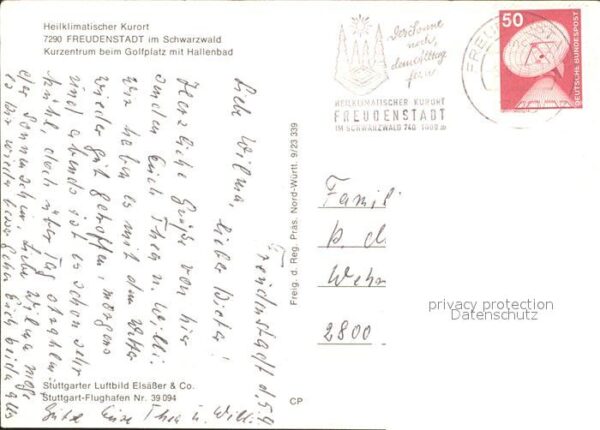 Heilklimatischer Kurort
7290 FREUDENSTADT im Schwarzwald
Kurzentrum beim Golfplatz mit Hallenbad
Der Sonne
noch,
dem Alltag
fern
HEILKLIMATISCHER KURORT
FREUDENSTADT
IM SCHWARZWALD 740-1000 m
50
DEUTSCHE BUNDESPOST
Freudenstadt d. 5.9.
Liebe Wilma, lieber Dieter!
Herzliche Grüße von hier
senden Euch Thea u. Willi.
Wir haben es mit dem Wetter
wieder gut getroffen, morgens
und abends ist es schon sehr
kühl, doch über Tag strahlen
der Sonnenschein. Liebe Wilma
es Dir wieder besser gehen Euch beide alles
Gute Eure Thea u. Willi.
Freig. d. Reg. Präs. Nord-Württ. 9/23 339
Famil
2800
privacy protection
Datenschutz
Stuttgarter Luftbild Elsäßer & Co.
Stuttgart-Flughafen Nr. 39 094
CP